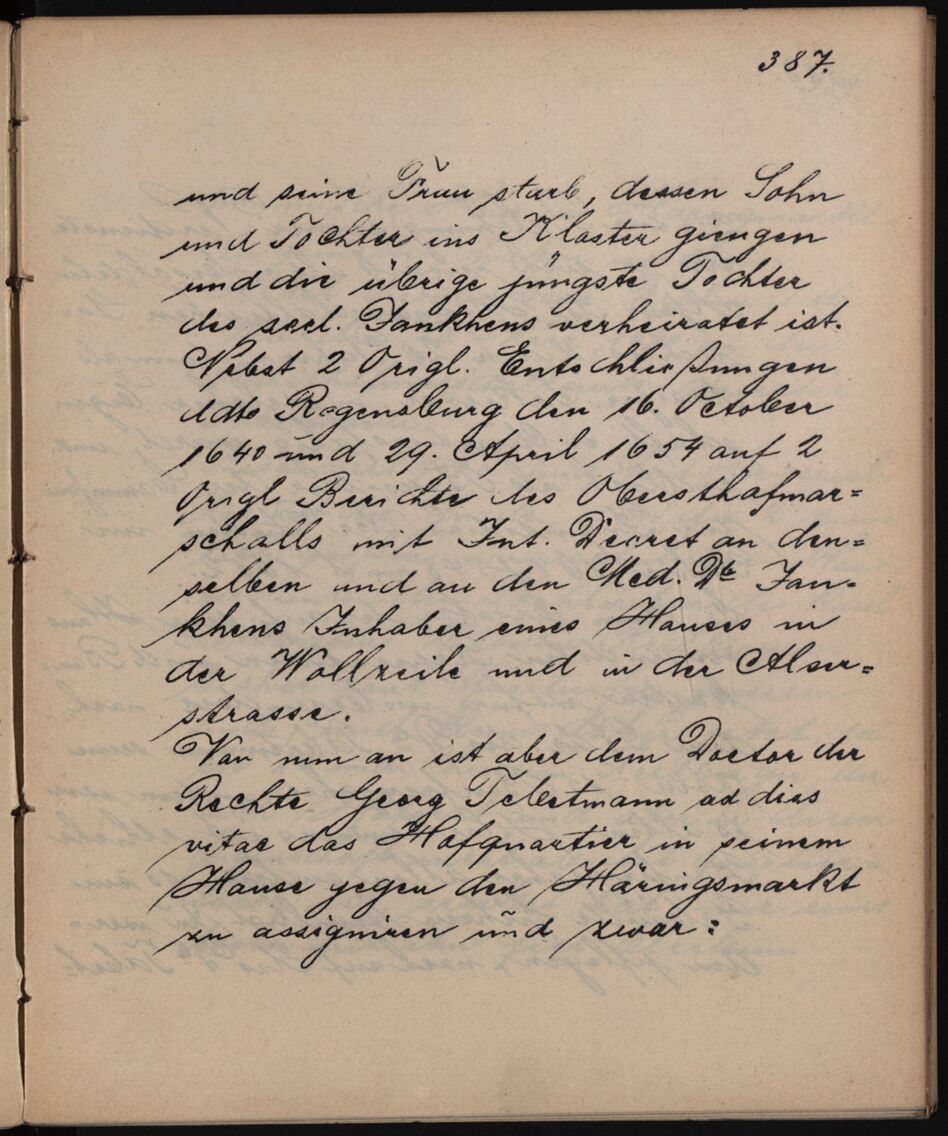 387.
und seine Frau starb, dessen Sohn
und Tochter ins Kloster giengen
und die übrige jüngste Tochter
des seel. Jankhens verheiratet ist.
Nebst 2 Origl. Entschließungen
ddto Regensburg den 16. October
1640 und 29. April 1654 auf 2
Origl Berichte des Obersthofmar=
schalls mit Int. Decret an den=
selben und an den Med. Dr Jan=
khens Inhaber eines Hauses in
der Wollzeile und in der Alser=
strasse.
Von nun an ist aber dem Doctor der
Rechte Georg ad dies
vitae das Hofquartier in seinem
Hause gegen den Häringsmarkt
zu assigniren und zwar: